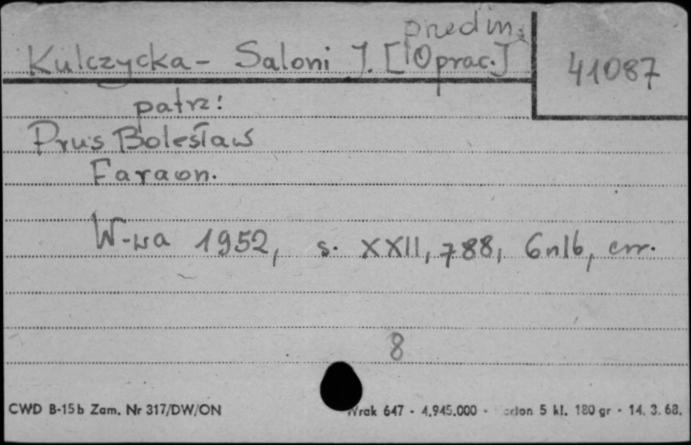 przedm.
Kulczycka-Saloni J. [Oprac.] 41087
patrz:
Prus Bolesław
Faraon.
W-wa 1952, s. XXII, 788, 6nlb, err.
8
CWD B-15b Zam. Nr 317/DW/ON Wrak 647 - 4.945.000 - 5 kl. 180 gr - 14. 3. 68.